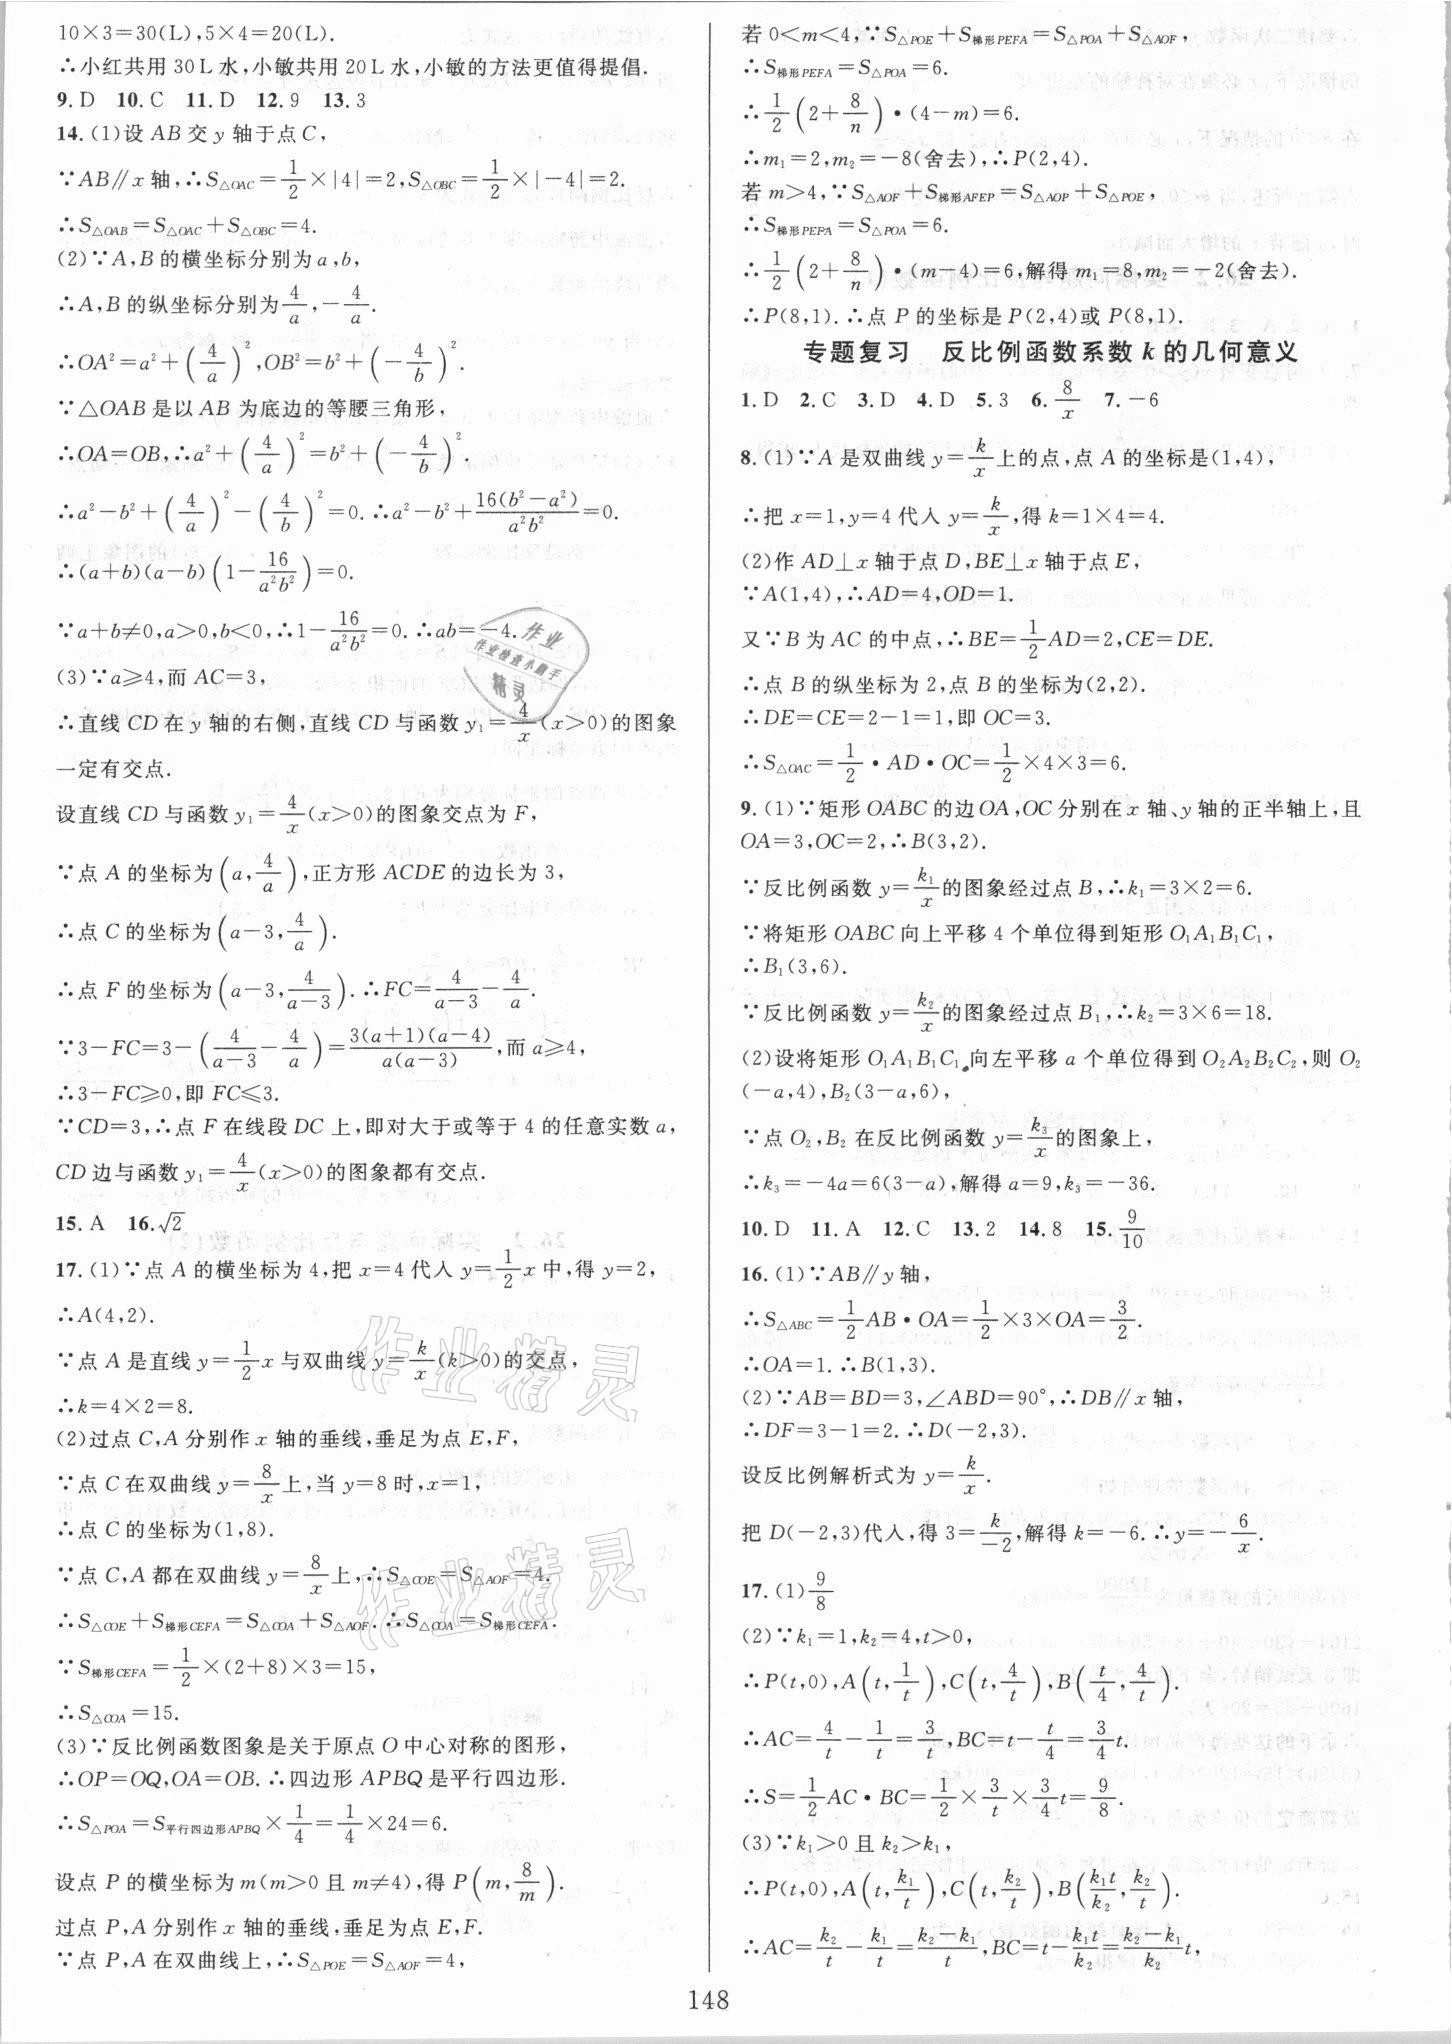 10×3=30(L),5×4=20(L).
∴小红共用 30 L 水,小敏共用 20 L 水,小敏的方法更值得提倡.
9. D 10. C 11. D 12. 9 13. 3
14. (1)设 AB 交 y 轴于点 C,
∵AB∥x 轴,∴S△OAC=1/2×|4|=2,S△OBC=1/2×|-4|=2.
∴S△OAB=S△OAC+S△OBC=4.
(2)∵A,B 的横坐标分别为 a,b,
∴A,B 的纵坐标分别为 4/a,-4/a.
∴OA²=a²+(4/a)²,OB²=b²+(-4/b)².
∵△OAB 是以 AB 为底边的等腰三角形,
∴OA=OB,∴a²+(4/a)²=b²+(-4/b)².
∴a²-b²+(4/a)²-(4/b)²=0.∴a²-b²+16(b²-a²)/a²b²=0.
∴(a+b)(a-b)(1-16/a²b²)=0.
∵a+b≠0,a>0,b<0,∴1-16/a²b²=0.∴ab=-4.
(3)∵a≥4,而 AC=3,
∴直线 CD 在 y 轴的右侧,直线 CD 与函数 y₁=4/x(x>0)的图象
一定有交点.
设直线 CD 与函数 y₁=4/x(x>0)的图象交点为 F,
∵点 A 的坐标为(a,4/a),正方形 ACDE 的边长为 3,
∴点 C 的坐标为(a-3,4/a).
∴点 F 的坐标为(a-3,4/(a-3)).∴FC=4/(a-3)-4/a.
∵3-FC=3-(4/(a-3)-4/a)=3(a+1)(a-4)/a(a-3),而 a≥4,
∴3-FC≥0,即 FC≤3.
∵CD=3,∴点 F 在线段 DC 上,即对大于或等于 4 的任意实数 a,
CD 边与函数 y₁=4/x(x>0)的图象都有交点.
15. A 16. √2
17. (1)∵点 A 的横坐标为 4,把 x=4 代入 y=1/2x 中,得 y=2,
∴A(4,2).
∵点 A 是直线 y=1/2x 与双曲线 y=k/x(k>0)的交点,
∴k=4×2=8.
(2)过点 C,A 分别作 x 轴的垂线,垂足为点 E,F,
∵点 C 在双曲线 y=8/x 上,当 y=8 时,x=1,
∴点 C 的坐标为(1,8).
∵点 C,A 都在双曲线 y=8/x 上,∴S△COE=S△AOF=4.
∴S△COE+S梯形CEFA=S△COA+S△AOF.∴S△COA=S梯形CEFA.
∵S梯形CEFA=1/2×(2+8)×3=15,
∴S△COA=15.
(3)∵反比例函数图象是关于原点 O 中心对称的图形,
∴OP=OQ,OA=OB.∴四边形 APBQ 是平行四边形.
∴S△POA=S平行四边形APBQ×1/4=1/4×24=6.
设点 P 的横坐标为 m(m>0 且 m≠4),得 P(m,8/m).
过点 P,A 分别作 x 轴的垂线,垂足为点 E,F.
∵点 P,A 在双曲线上,∴S△POE=S△AOF=4,
若 0<m<4,∵S△POE+S梯形PEFA=S△POA+S△AOF,
∴S梯形PEFA=S△POA=6.
∴1/2(2+8/n)•(4-m)=6.
∴m₁=2,m₂=-8(舍去),∴P(2,4).
若 m>4,∵S△AOF+S梯形AFEP=S△AOP+S△POE,
∴S梯形PEPA=S△POA=6.
∴1/2(2+8/n)•(m-4)=6,解得 m₁=8,m₂=-2(舍去).
∴P(8,1).∴点 P 的坐标是 P(2,4)或 P(8,1).
专题复习 反比例函数系数 k 的几何意义
1. D 2. C 3. D 4. D 5. 3 6. 8/x 7. -6
8. (1)∵A 是双曲线 y=k/x 上的点,点 A 的坐标是(1,4),
∴把 x=1,y=4 代入 y=k/x,得 k=1×4=4.
(2)作 AD⊥x 轴于点 D,BE⊥x 轴于点 E,
∵A(1,4),∴AD=4,OD=1.
又∵B 为 AC 的中点,∴BE=1/2AD=2,CE=DE.
∴点 B 的纵坐标为 2,点 B 的坐标为(2,2).
∴DE=CE=2-1=1,即 OC=3.
∴S△OAC=1/2•AD•OC=1/2×4×3=6.
9. (1)∵矩形 OABC 的边 OA,OC 分别在 x 轴、y 轴的正半轴上,且
OA=3,OC=2,∴B(3,2).
∵反比例函数 y=k₁/x 的图象经过点 B,∴k₁=3×2=6.
∵将矩形 OABC 向上平移 4 个单位得到矩形 O₁A₁B₁C₁,
∴B₁(3,6).
∵反比例函数 y=k₂/x 的图象经过点 B₁,∴k₂=3×6=18.
(2)设将矩形 O₁A₁B₁C₁ 向左平移 a 个单位得到 O₂A₂B₂C₂,则 O₂
(-a,4),B₂(3-a,6),
∵点 O₂,B₂ 在反比例函数 y=k₃/x 的图象上,
∴k₃=-4a=6(3-a),解得 a=9,k₃=-36.
10. D 11. A 12. C 13. 2 14. 8 15. 9/10
16. (1)∵AB∥y 轴,
∴S△ABC=1/2AB•OA=1/2×3×OA=3/2.
∴OA=1.∴B(1,3).
(2)∵AB=BD=3,∠ABD=90°,∴DB∥x 轴,
∴DF=3-1=2.∴D(-2,3).
设反比例解析式为 y=k/x.
把 D(-2,3)代入,得 3=k/-2,解得 k=-6.∴y=-6/x.
17. (1)9/8
(2)∵k₁=1,k₂=4,t>0,
∴P(t,0),A(t,1/t),C(t,4/t),B(t/4,4/t).
∴AC=4/t-1/t=3/t,BC=t-t/4=3/4t.
∴S=1/2AC•BC=1/2×3/t×3/4t=9/8.
(3)∵k₁>0 且 k₂>k₁,
∴P(t,0),A(t,k₁/t),C(t,k₂/t),B(k₁t/k₂,k₂/t).
∴AC=k₂/t-k₁/t=(k₂-k₁)/t,BC=t-k₁t/k₂=(k₂-k₁)/k₂t,
148
作业
作业检查小助手
精灵
作业精灵
作业精灵